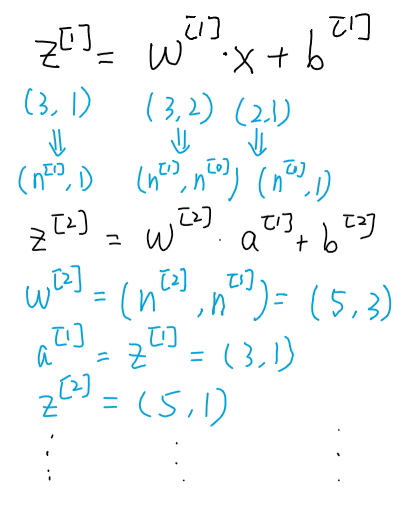 z^[1] = w^[1] · x + b^[1]
(3, 1) (3, 2) (2, 1)
⇓ ⇓ ⇓
(n^[1], 1) (n^[1], n^[0]) (n^[0], 1)
z^[2] = w^[2] · a^[1] + b^[2]
w^[2] = (n^[2], n^[1]) = (5, 3)
a^[1] = z^[1] = (3, 1)
z^[2] = (5, 1)
⋮ ⋮ ⋮